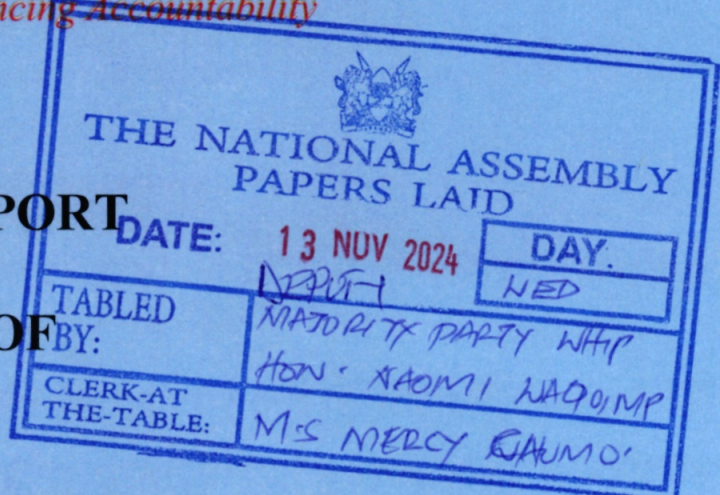 ncing Accountability
THE NATIONAL ASSEMBLY
PAPERS LAID
PORT
DATE: 13 NOV 2024 DAY.
DEPUTY WED
TABLED MAJORITY PARTY WHIP
OF
BY: HON. NAOMI WAQO, MP
CLERK-AT
THE-TABLE: MS MERCY